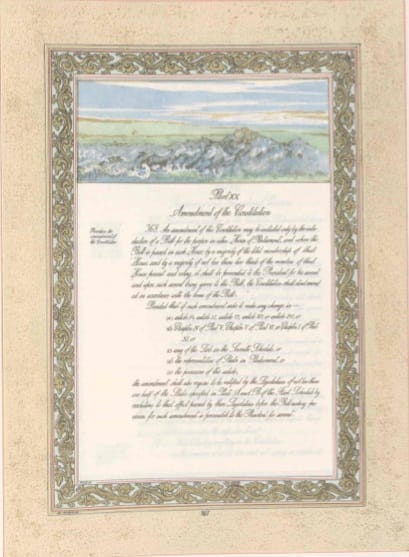 Part XX
Amendment of the Constitution
Procedure for
amendment of
the Constitution
368. An amendment of this Constitution may be initiated only by the intro-
duction of a Bill for the purpose in either House of Parliament, and when the
Bill is passed in each House by a majority of the total membership of that
House and by a majority of not less than two thirds of the members of that
House present and voting, it shall be presented to the President for his assent
and upon such assent being given to the Bill, the Constitution shall stand amend-
ed in accordance with the terms of the Bill:
Provided that if such amendment seeks to make any change in—
(a) article 54, article 55, article 73, article 162 or article 241, or
(b) Chapter IV of Part V, Chapter V of Part VI, or Chapter I of Part
XI, or
(c) any of the Lists in the Seventh Schedule, or
(d) the representation of States in Parliament, or
(e) the provisions of this article,
the amendment shall also require to be ratified by the Legislatures of not less than
one half of the States specified in Parts A and B of the First Schedule by
resolutions to that effect passed by those Legislatures before the Bill making pro-
vision for such amendment is presented to the President for assent.
167